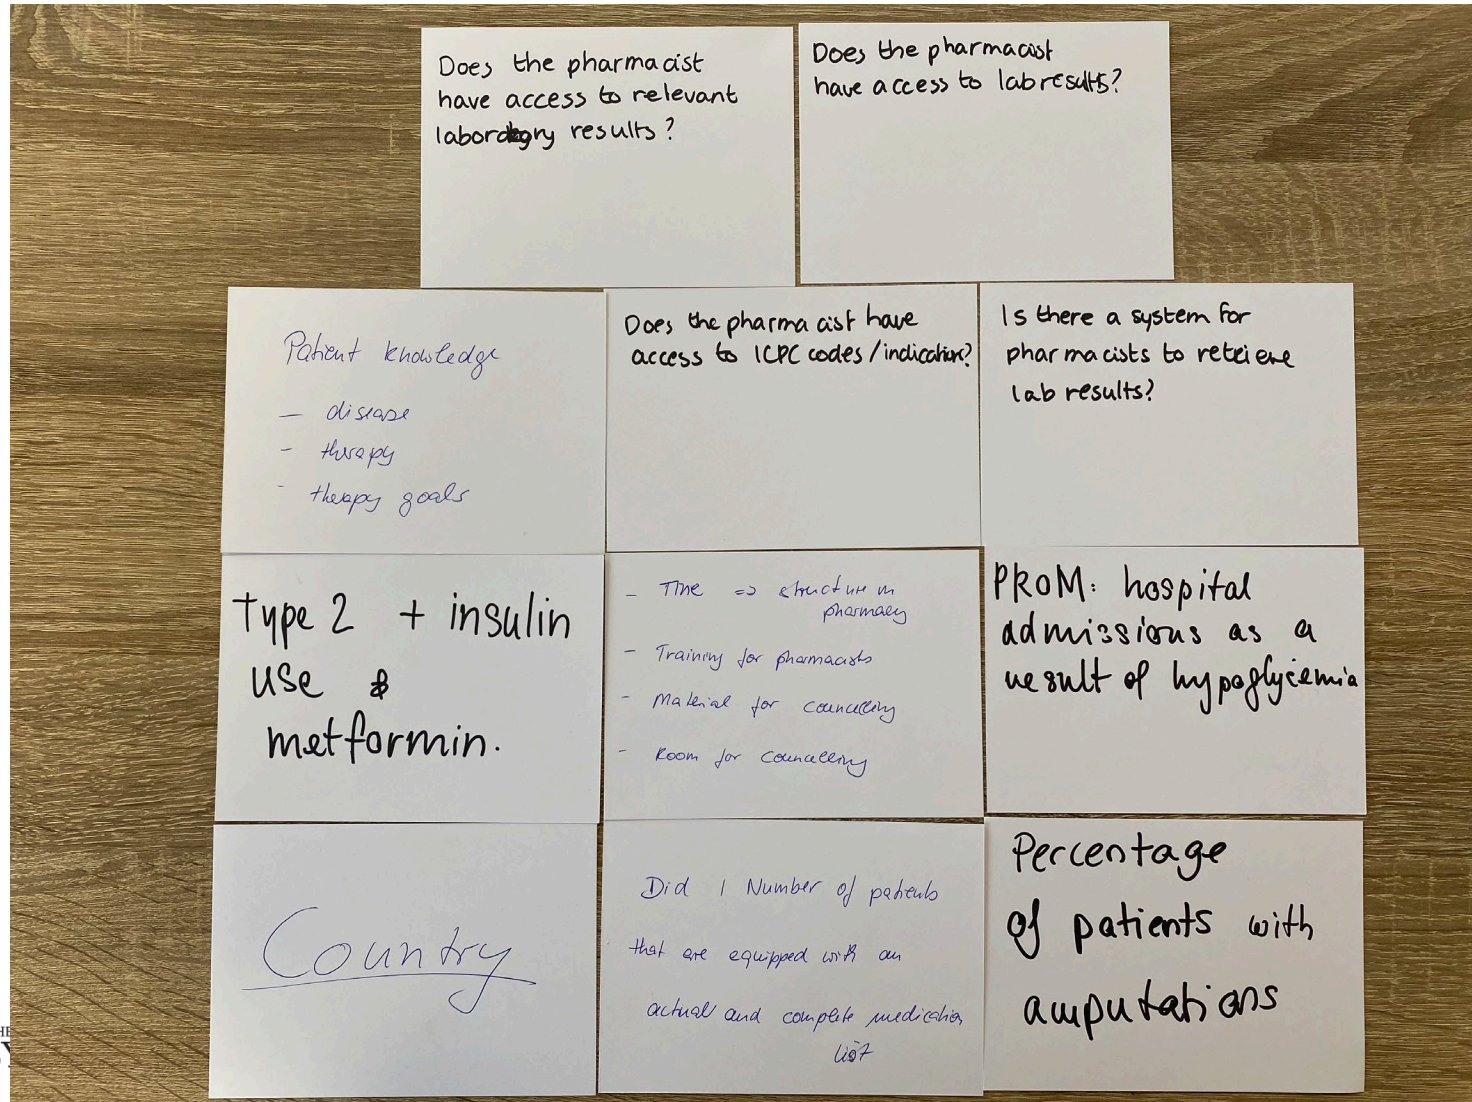 Does the pharmacist
have access to relevant
laboratory results?
Does the pharmacist
have access to lab results?
Patient knowledge
- disease
- therapy
- therapy goals
Does the pharmacist have
access to ICPC codes/indication?
Is there a system for
pharmacists to retrieve
lab results?
Type 2 + insulin
use &
metformin.
- Time => structure in
pharmacy
- Training for pharmacists
- Material for councelling
- Room for councelling
PROM: hospital
admissions as a
result of hypoglycemia
Country
Did 1 Number of patients
that are equipped with an
actual and complete medication
list
Percentage
of patients with
amputations